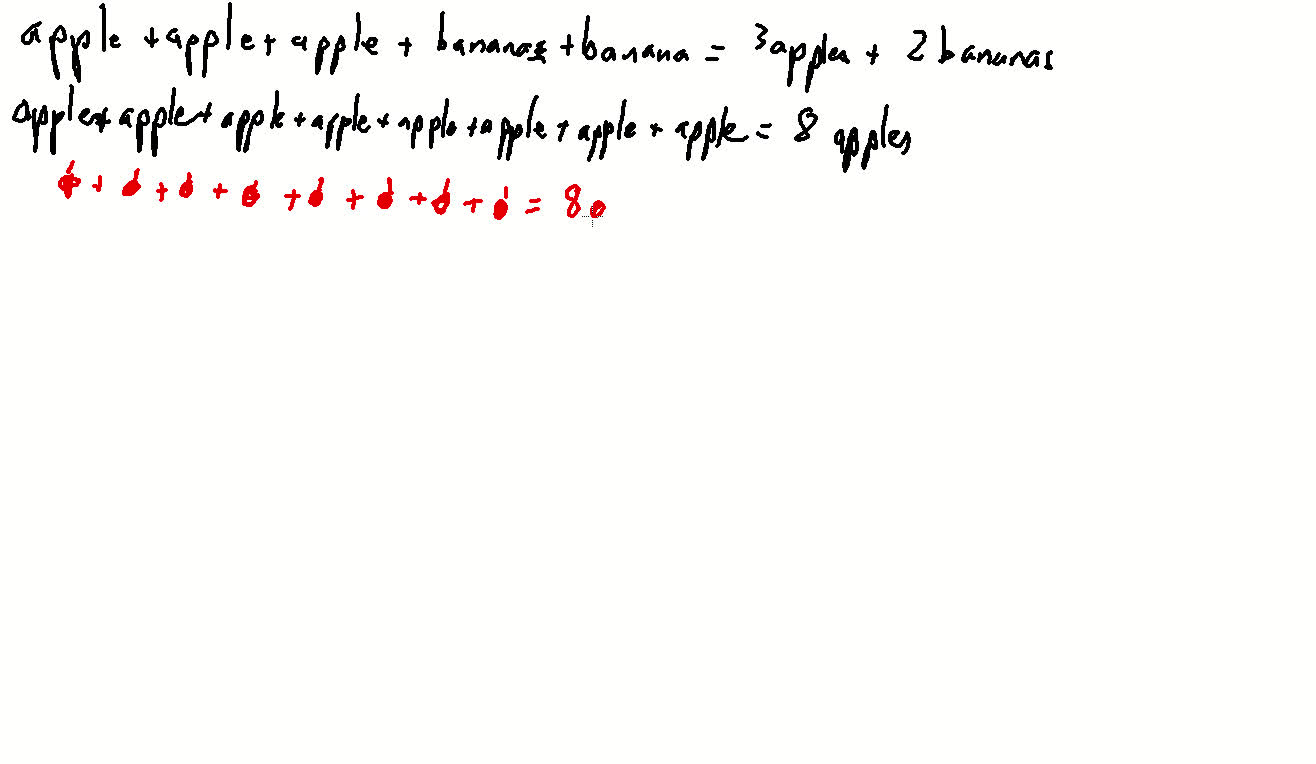 apple + apple + apple + bananas + banana = 3 apples + 2 bananas
apple + apple + apple + apple + apple + apple + apple + apple = 8 apples
+ + + + + + + = 8